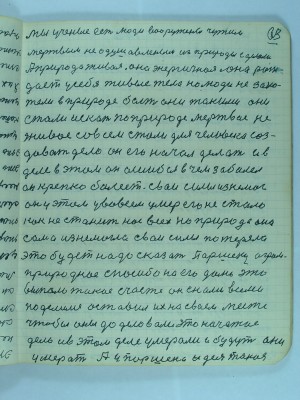 18
Мы ученые есть люди вооружены чужим
мертвым не одушевленным из природы сделали
А природа живая, она энергичная, она рож-
дает у себя живые тело но люди не захо-
тели в природе быть они такими они
стали искать по природе мертвое не
живое совсем стали для человека соз-
давать дело он его начал делать и в
деле в этом он ошибся в чем заболел
он крепко болеет. свои силы изнемог
он у этом увовсем умер его не стало
как не станет нас всех но природе она
сама изнемогла свои силы потеряла
это будет надо сказать Паршеку
природное спосибо на его дань это
выпало такое счастье он снами всеми
поделился оставил их на своем месте
чтобы они до дела это начатое
дель и в этом деле умерали и будут они
умерать А у поршека идея такая